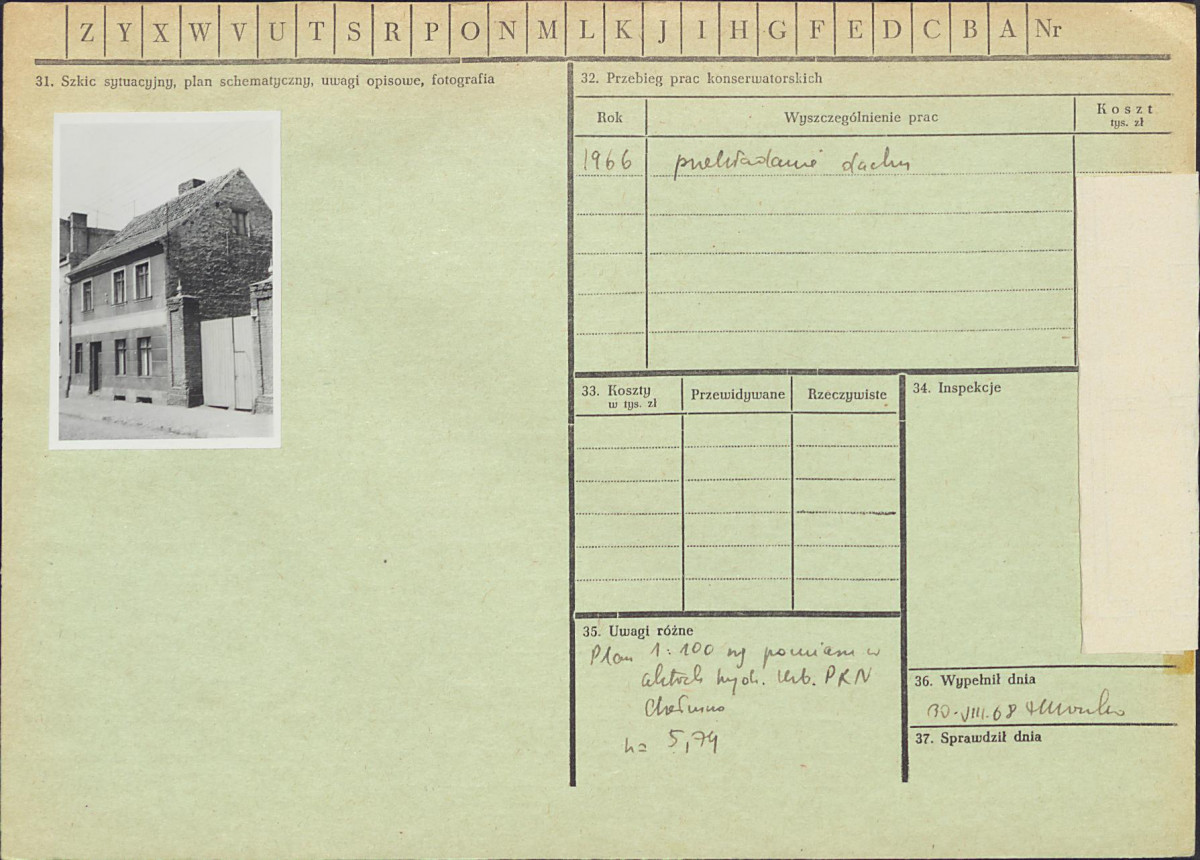 Z Y X W V U T S R P O N M L K J I H G F E D C B A Nr
31. Szkic sytuacyjny, plan schematyczny, uwagi opisowe, fotografia
32. Przebieg prac konserwatorskich
Rok
Wyszczególnienie prac
Koszt
tys. zł
1966 przekładanie dachu
33. Koszty
w tys. zł
Przewidywane
Rzeczywiste
34. Inspekcje
35. Uwagi różne
Plan 1:100 wg pomiaru w
aktach wydz. Urb. PRN
Chełmno
h= 5,79
36. Wypełnił dnia
30.VIII.68
37. Sprawdził dnia